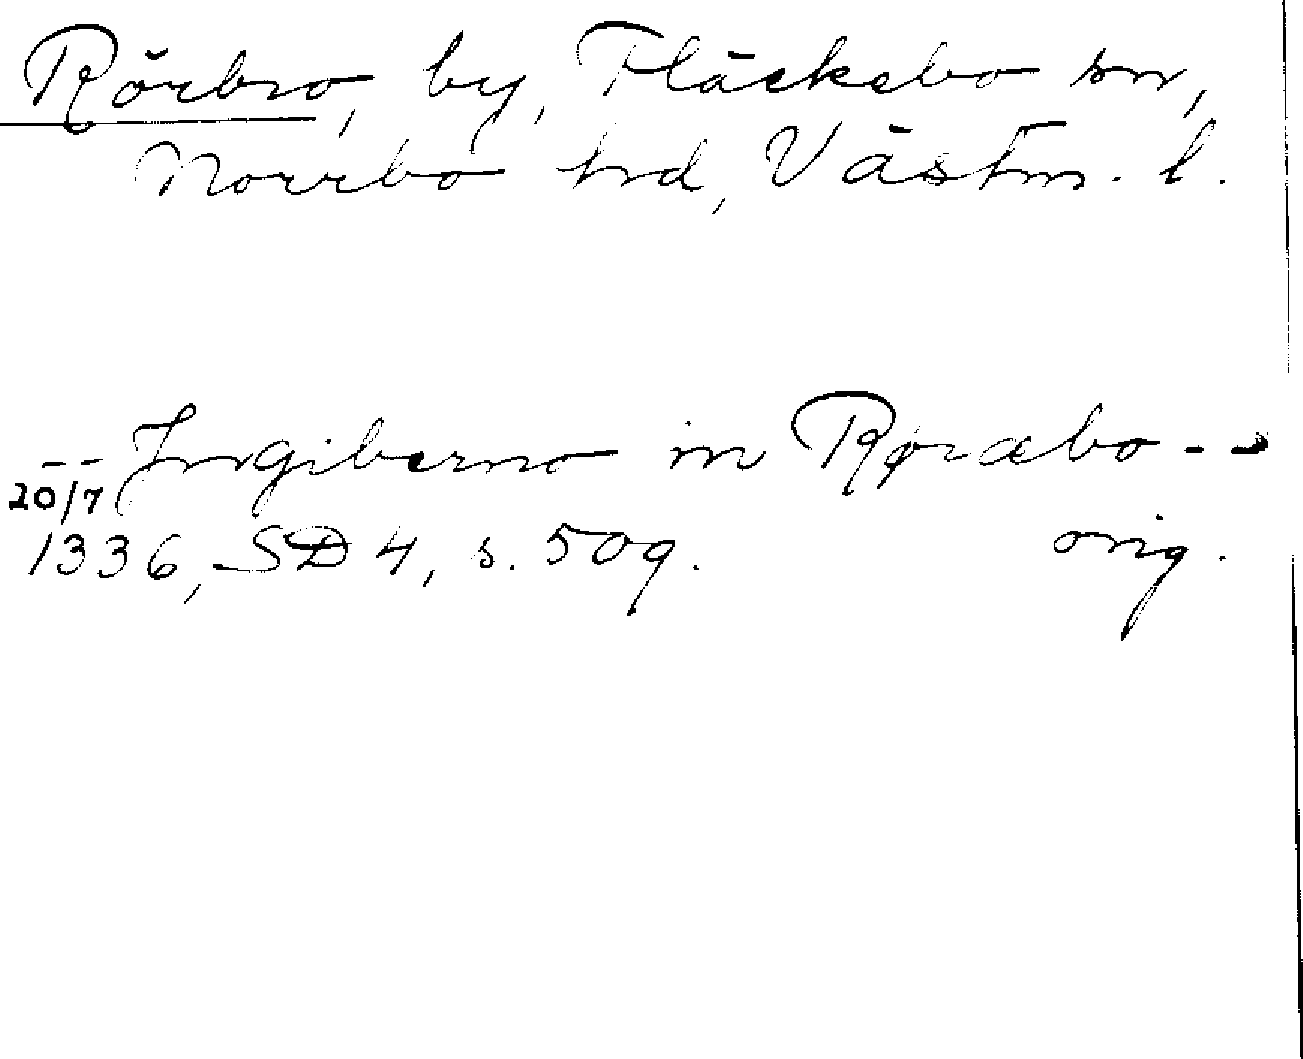 Rörbo, by, Fläckebo sn,
Norrbo hd, Västm. l.
-- Ingiberno in Røræbo --
20/7
1336, SD 4, s. 509. orig.